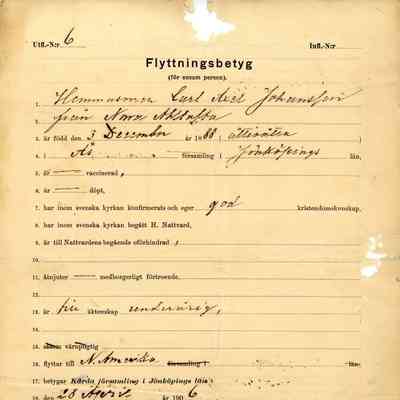 Utfl.-N:r 6 Infl.-N:r
Flyttningsbetyg
(för ensam person).
1. Hemmasonen Carl Axel Johansson
2. från Norra
3. är född den 3 December år 1888 (åttiåtta
4. i Ås församling i Jönköpings län,
5. är vaccinerad,
6. är döpt,
7. har inom svenska kyrkan konfirmerats och eger god kristendomskunskap,
8. har inom svenska kyrkan begått H. Nattvard,
9. är till Nattvardens begående oförhindrad,
10.
11. åtnjuter medborgerligt förtroende,
12.
13. är för äktenskap underårig,
14.
15. såsom värnpligtig
16. flyttar till N. Amerika församling i län
17. betygar Kärda församling i Jönköpings län
18. den 28 April år 1906